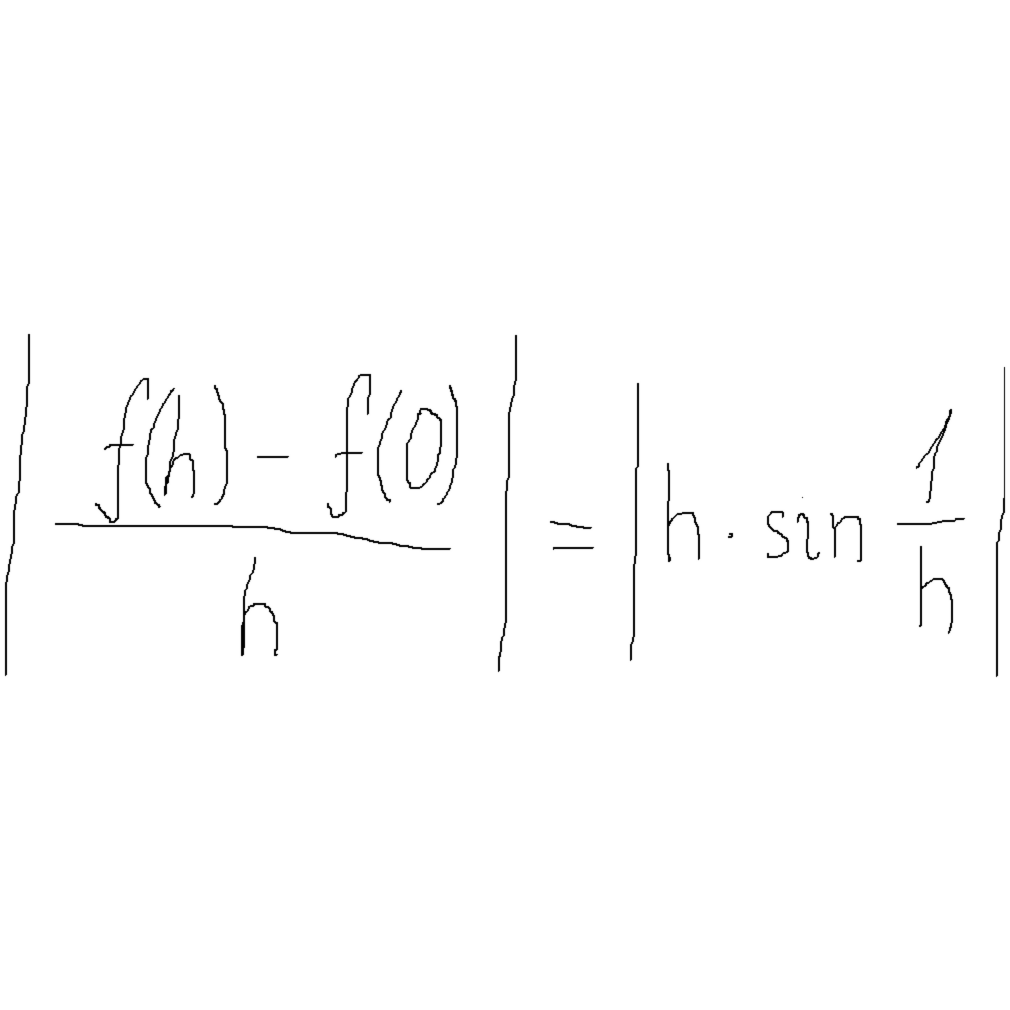 | (f(h) - f(0)) / h | = | h · sin 1/h |